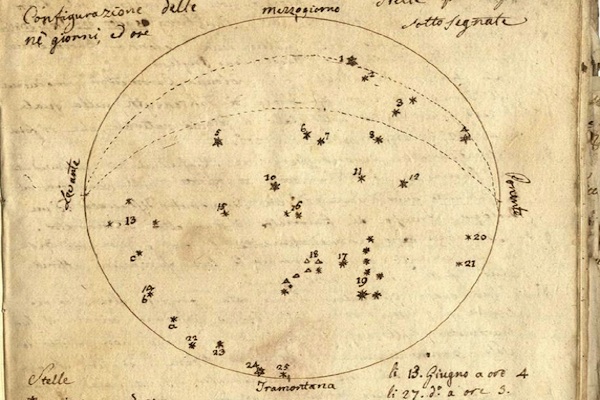 Configurazione delle
nè giorni, ed ore
mezzogiorno
sotto segnate
1
2
3
4
5
6
7
8
10
11
12
13
15
16
Levante
Ponente
c
17
18
19
20
21
b
a
22
23
24
25
Tramontana
Stelle
li 13. Giugno a ore 4
li 27. d.º a ore 3.